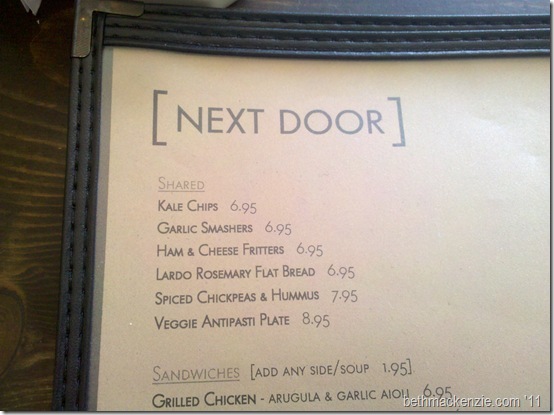 [NEXT DOOR]
SHARED
KALE CHIPS 6.95
GARLIC SMASHERS 6.95
HAM & CHEESE FRITTERS 6.95
LARDO ROSEMARY FLAT BREAD 6.95
SPICED CHICKPEAS & HUMMUS 7.95
VEGGIE ANTIPASTI PLATE 8.95
SANDWICHES [ADD ANY SIDE/SOUP 1.95]
GRILLED CHICKEN - ARUGULA & GARLIC AIOLI 6.95
bethmackenzie.com '11